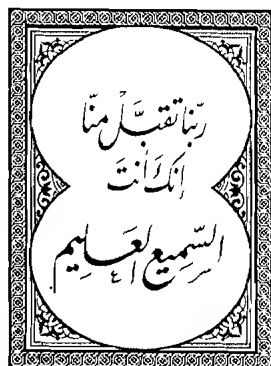 ربّنا تقبَّل منّا
انكَ أنتَ
السّميع العليم